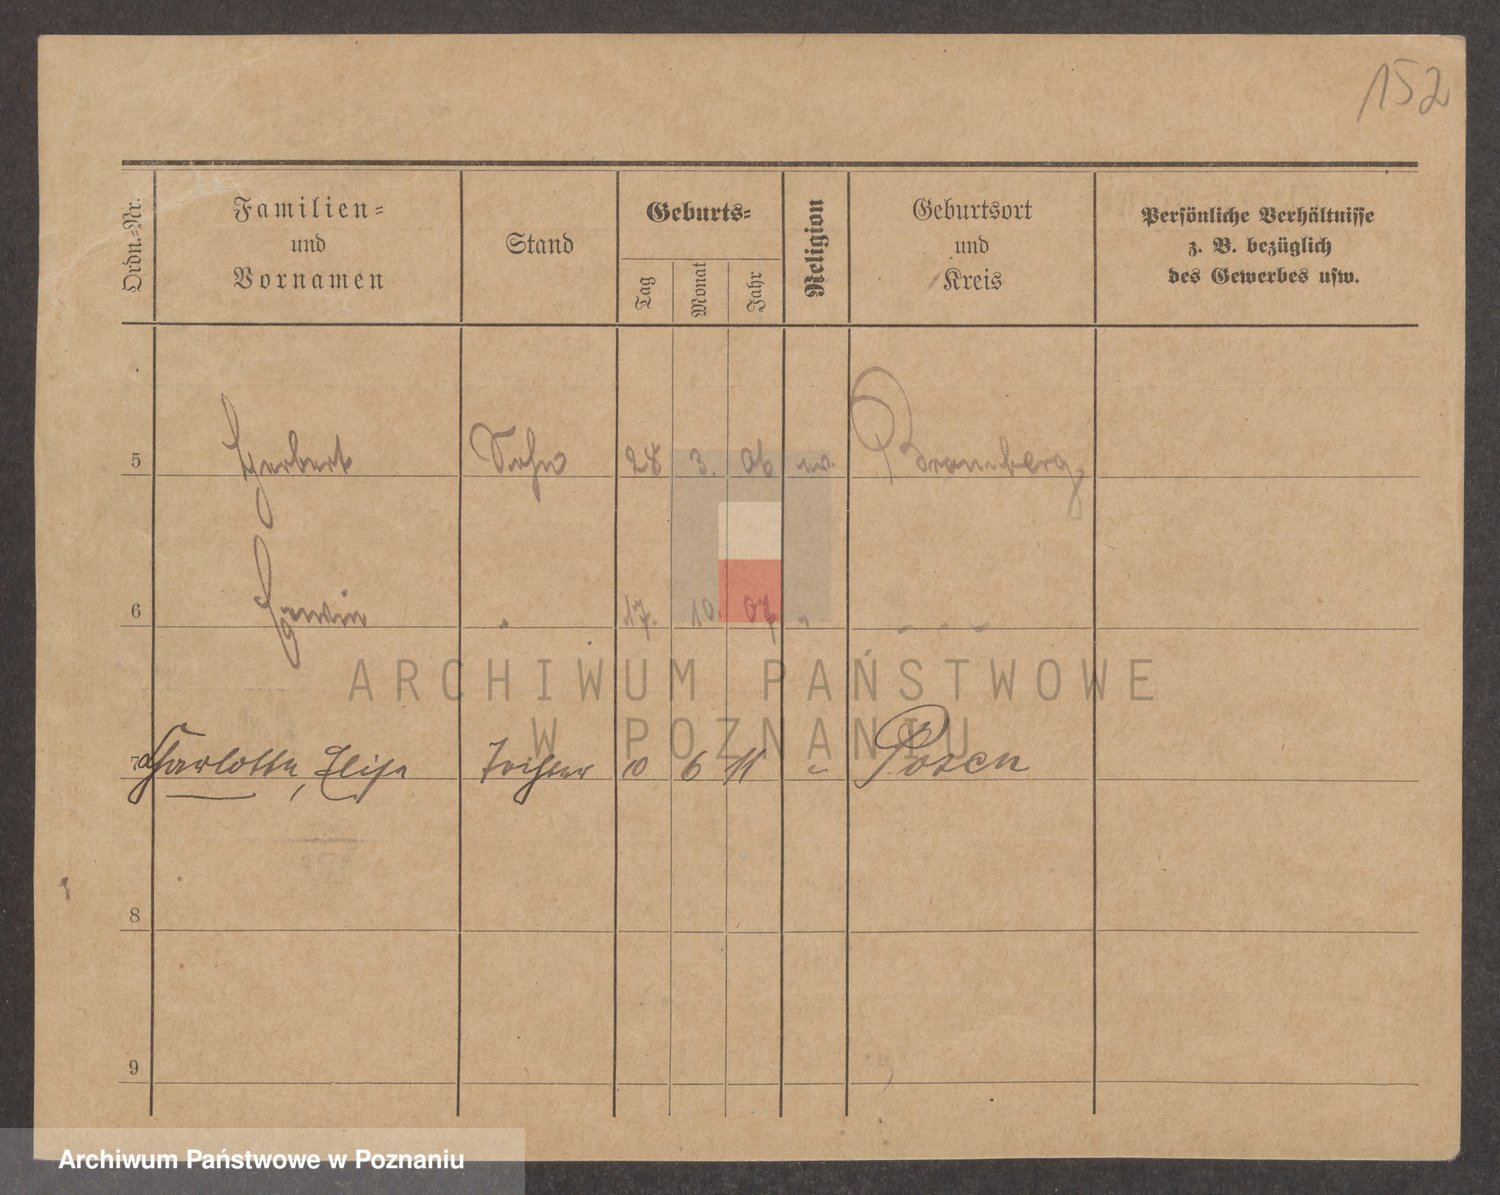 152
Ordn.-Nr.
Familien-
und
Vornamen
Stand
Geburts-
Tag
Monat
Jahr
Religion
Geburtsort
und
Kreis
Persönliche Verhältnisse
z. B. bezüglich
des Gewerbes usw.
5 Herbert Sohn 28 3. 06 ev. Bromberg
6 Erwin " 17. 10. 07 " " " "
7 Charlotte, Elise Tochter 10 6 11 " Posen
8
9
ARCHIWUM PAŃSTWOWE
W POZNANIU
Archiwum Państwowe w Poznaniu